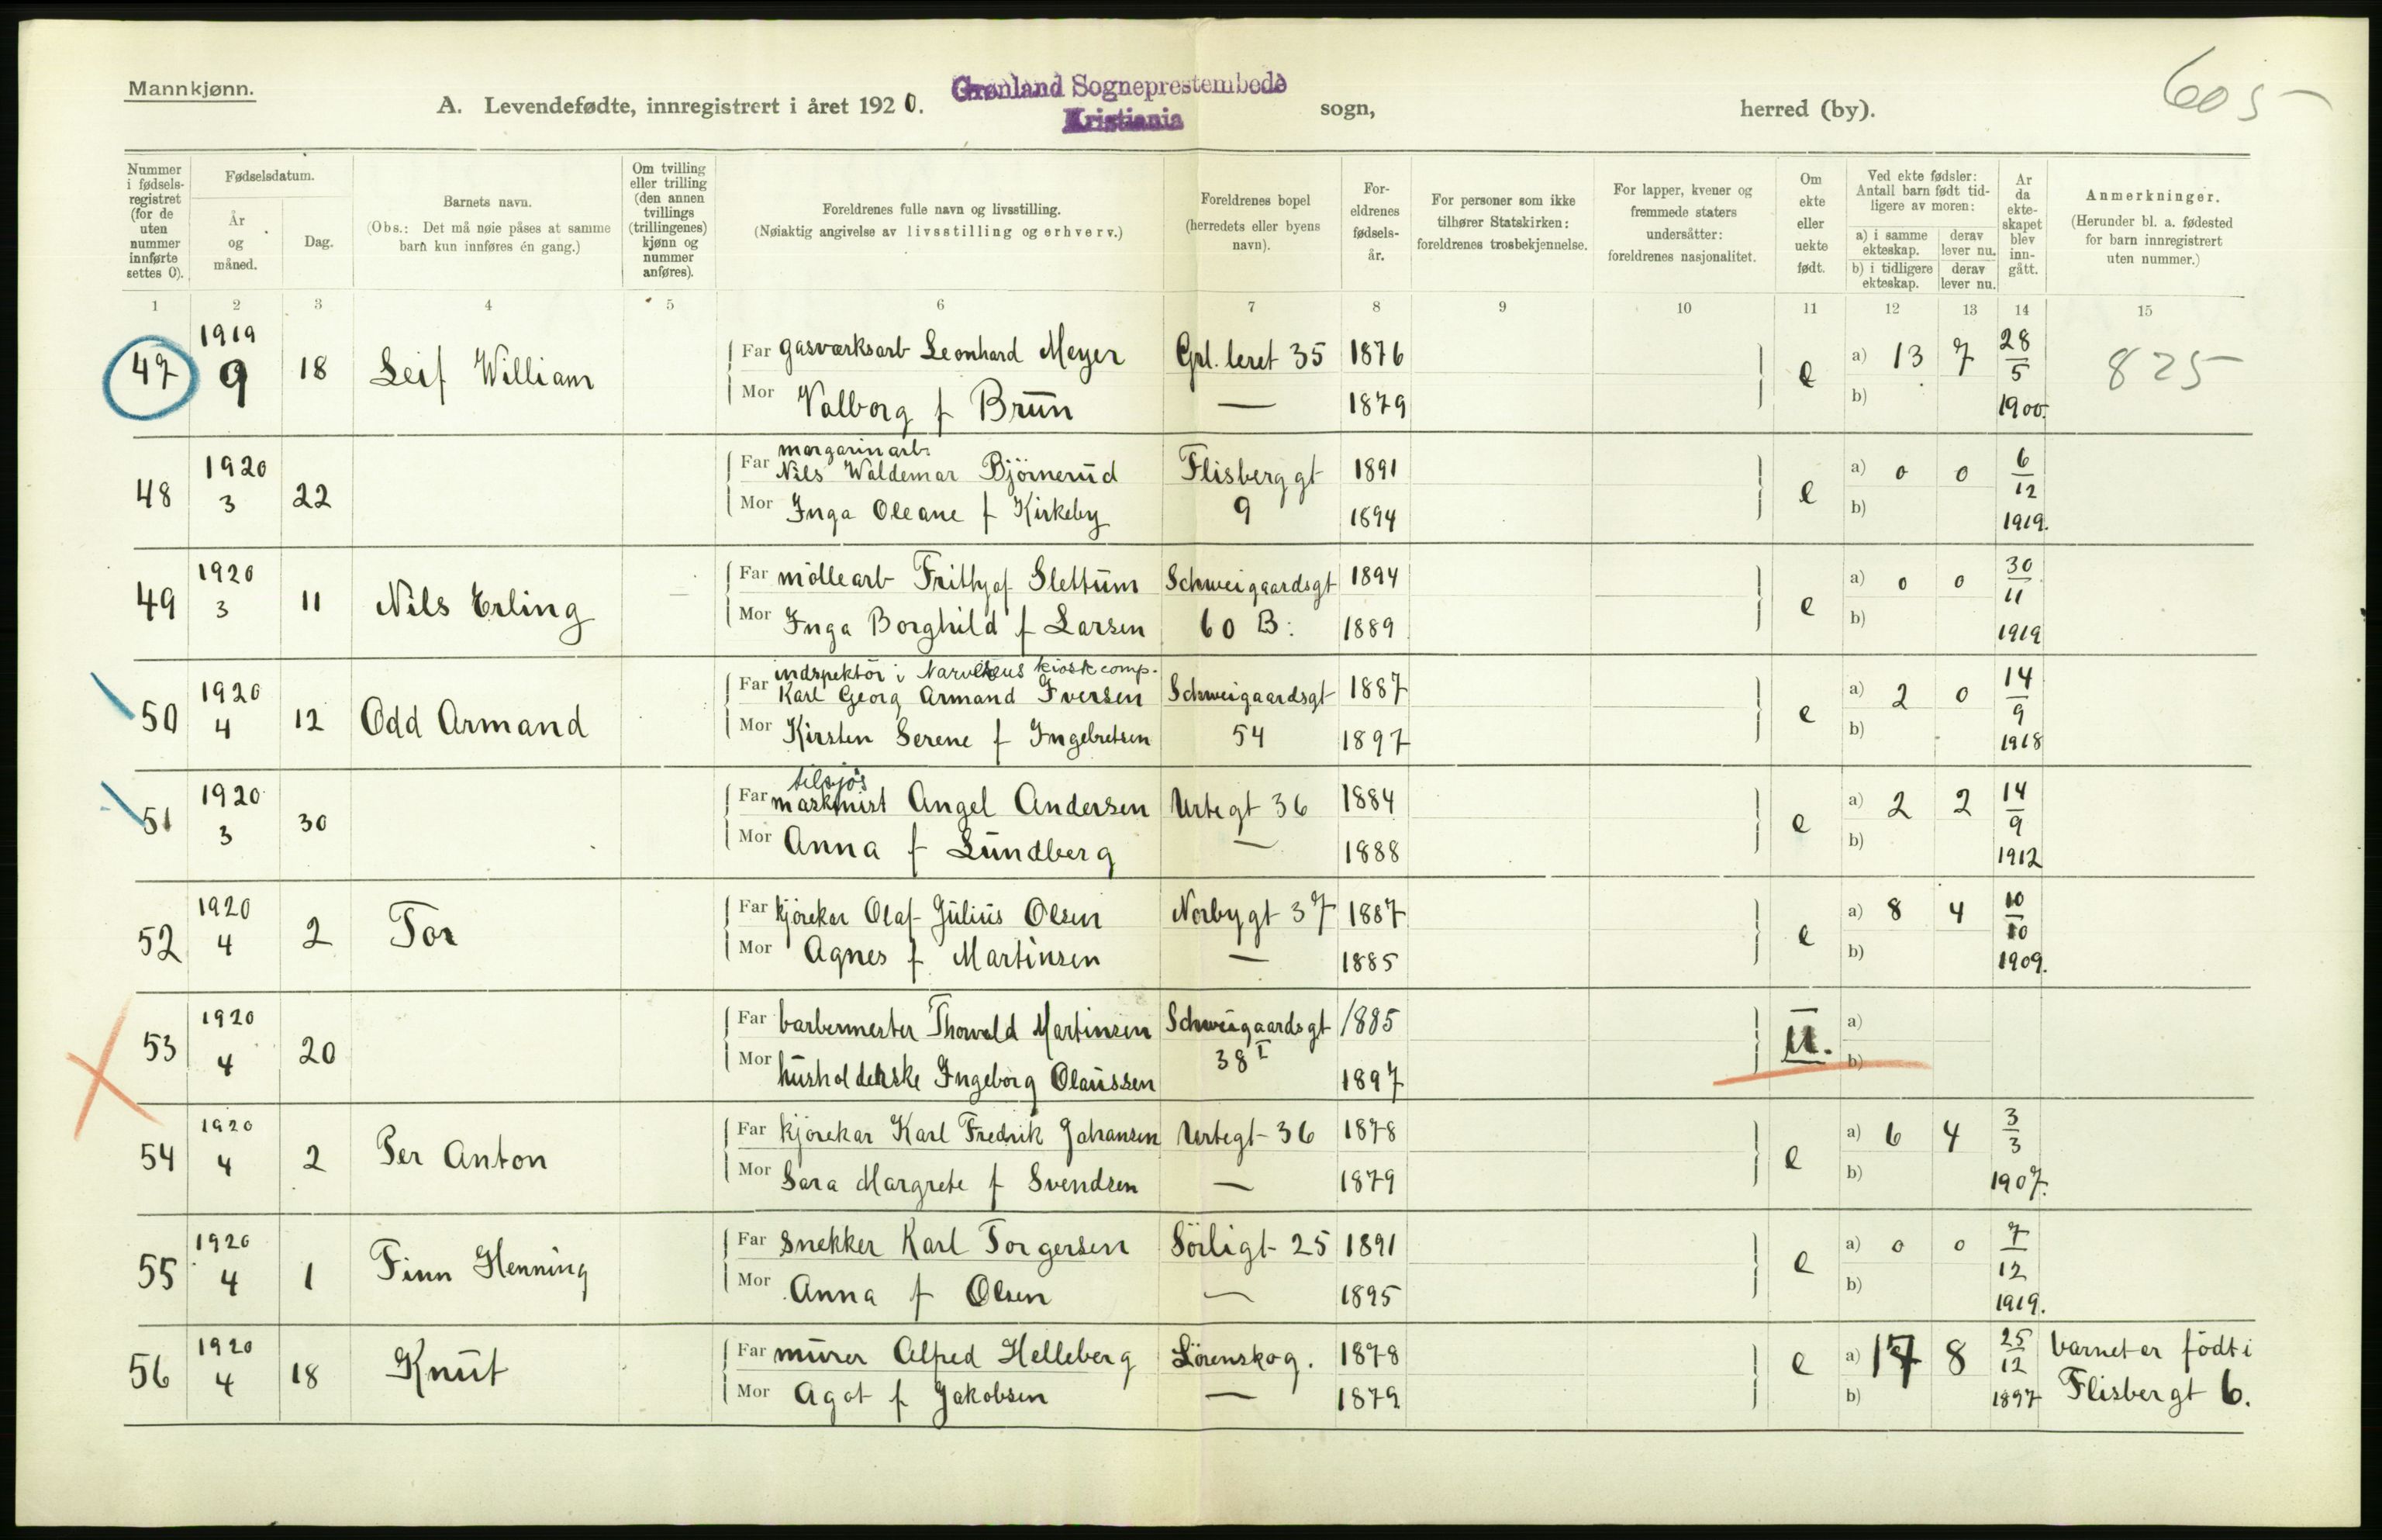 Mannkjønn.
A. Levendefødte, innregistrert i året 1920. Grønland Sogneprestembede sogn, herred (by). 605
Kristiania
Nummer i fødsels-registret (for de uten nummer innførte settes 0).
Fødselsdatum.
År og måned.
Dag.
Barnets navn.
(Obs.: Det må nøie påses at samme barn kun innføres én gang.)
Om tvilling eller trilling (den annen tvillings (trillingenes) kjønn og nummer anføres).
Foreldrenes fulle navn og livsstilling.
(Nøiaktig angivelse av livsstilling og erhverv.)
Foreldrenes bopel (herredets eller byens navn).
For-eldrenes fødsels-år.
For personer som ikke tilhører Statskirken: foreldrenes trosbekjennelse.
For lapper, kvener og fremmede staters undersåtter: foreldrenes nasjonalitet.
Om ekte eller uekte født.
Ved ekte fødsler: Antall barn født tid-ligere av moren:
a) i samme ekteskap. derav lever nu.
b) i tidligere ekteskap. derav lever nu.
Ar da ekte-skapet blev inn-gått.
Anmerkninger.
(Herunder bl. a. fødested for barn innregistrert uten nummer.)
1 2 3 4 5 6 7 8 9 10 11 12 13 14 15
47 1919 9 18 Leif William Far gasværksarb Leonhard Meyer Grl. leret 35 1876 e a) 13 7 28/5 1900. 825
Mor Valborg f Brun — 1879 b)
48 1920 3 22 Far margarinarb. Nils Waldemar Björnerud Flisberggt 9 1891 e a) 0 0 6/12 1919.
Mor Inga Oleane f Kirkeby 1894 b)
49 1920 3 11 Nils Erling Far möllearb Frithjof Slettum Schweigaardsgt 60 B: 1894 e a) 0 0 30/11 1919
Mor Inga Borghild f Larsen 1889 b)
50 1920 4 12 Odd Armand Far indspektör i Narvesens kiosk comp. Karl Georg Armand Iversen Schweigaardsgt 54 1887 e a) 2 0 14/9 1918
Mor Kirsten Serene f Ingebretsen 1897 b)
51 1920 3 30 Far maskinist tilsjös Angel Andersen Urtegt 36 1884 e a) 2 2 14/9 1912
Mor Anna f Lundberg — 1888 b)
52 1920 4 2 Tor Far kjörekar Olaf Julius Olsen Norbygt 37 1887 e a) 8 4 10/10 1909.
Mor Agnes f Martinsen — 1885 b)
53 1920 4 20 Far barbermester Thorvald Martinsen Schweigaardsgt 38 I 1885 u. a)
Mor husholderske Ingeborg Olaussen 1897 b)
54 1920 4 2 Per Anton Far kjörekar Karl Fredrik Johansen Urtegt 36 1878 e a) 6 4 3/3 1907.
Mor Sara Margrete f Svendsen — 1879 b)
55 1920 4 1 Finn Henning Far snekker Karl Torgersen Sörligt 25 1891 e a) 0 0 7/12 1919.
Mor Anna f Olsen — 1895 b)
56 1920 4 18 Knut Far murer Alfred Helleberg Lörenskog. 1878 e a) 17 8 25/12 1897 barnet er född i
Mor Agot f Jakobsen — 1879 b) Flisbergt 6.